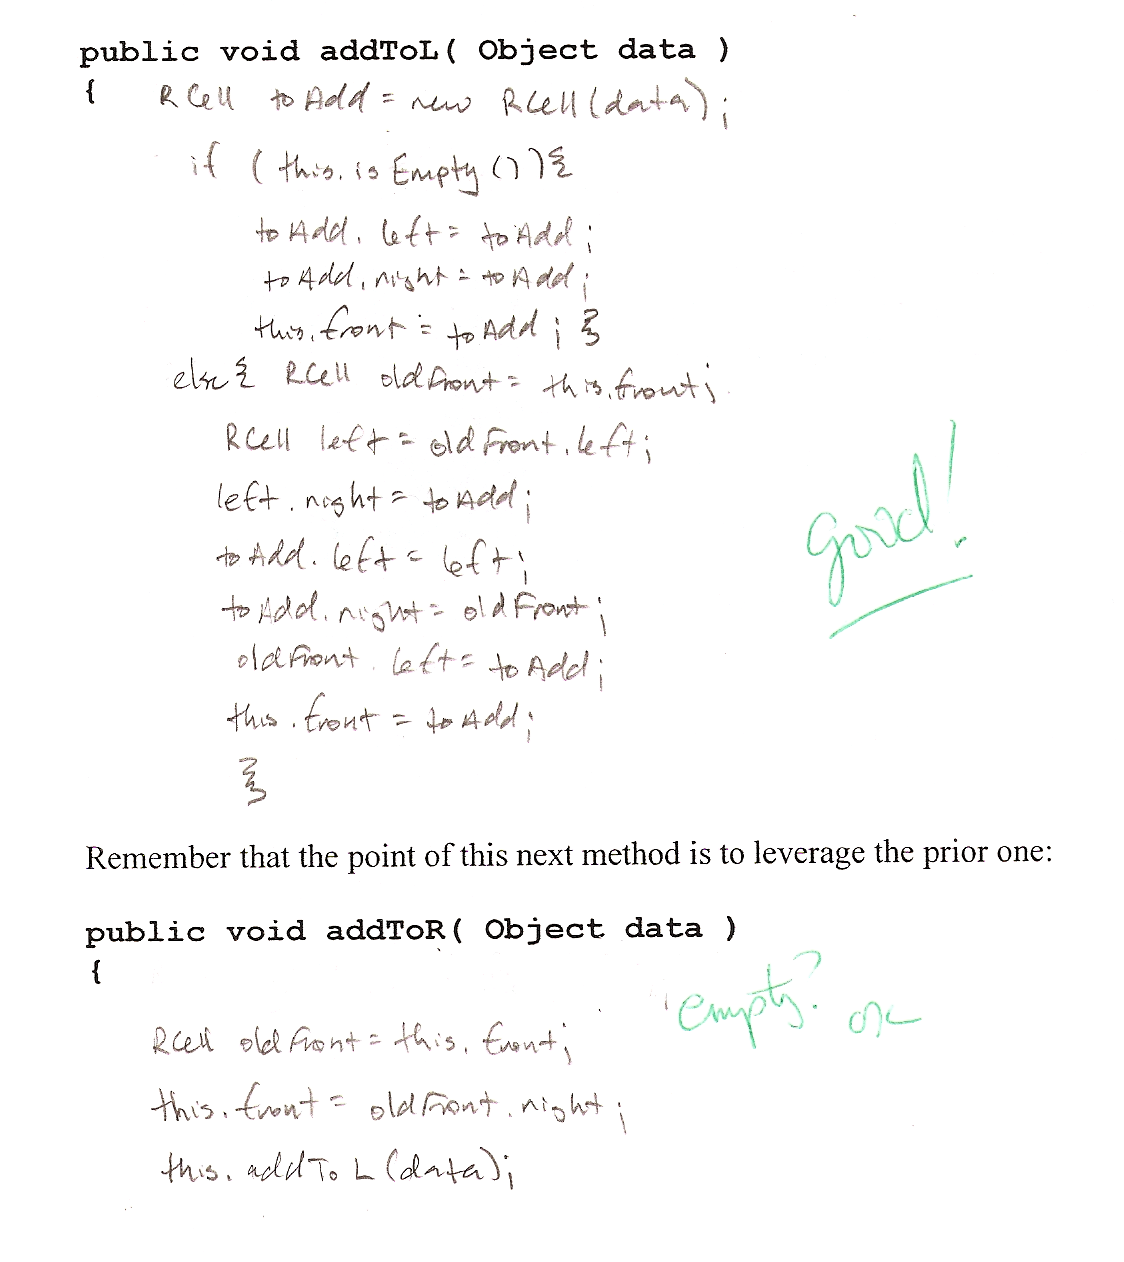 public void addToL( Object data )
{ RCell toAdd = new RCell(data);
if (this.isEmpty()){
toAdd.left = toAdd;
toAdd.right = toAdd;
this.front = toAdd; }
else{ RCell oldFront = this.front;
RCell left = oldFront.left;
left.right = toAdd;
toAdd.left = left;
toAdd.right = oldFront;
oldFront.left = toAdd;
this.front = toAdd;
}
Good!
Remember that the point of this next method is to leverage the prior one:
public void addToR( Object data )
{
empty? ok
RCell oldFront = this.front;
this.front = oldFront.right;
this.addToL(data);